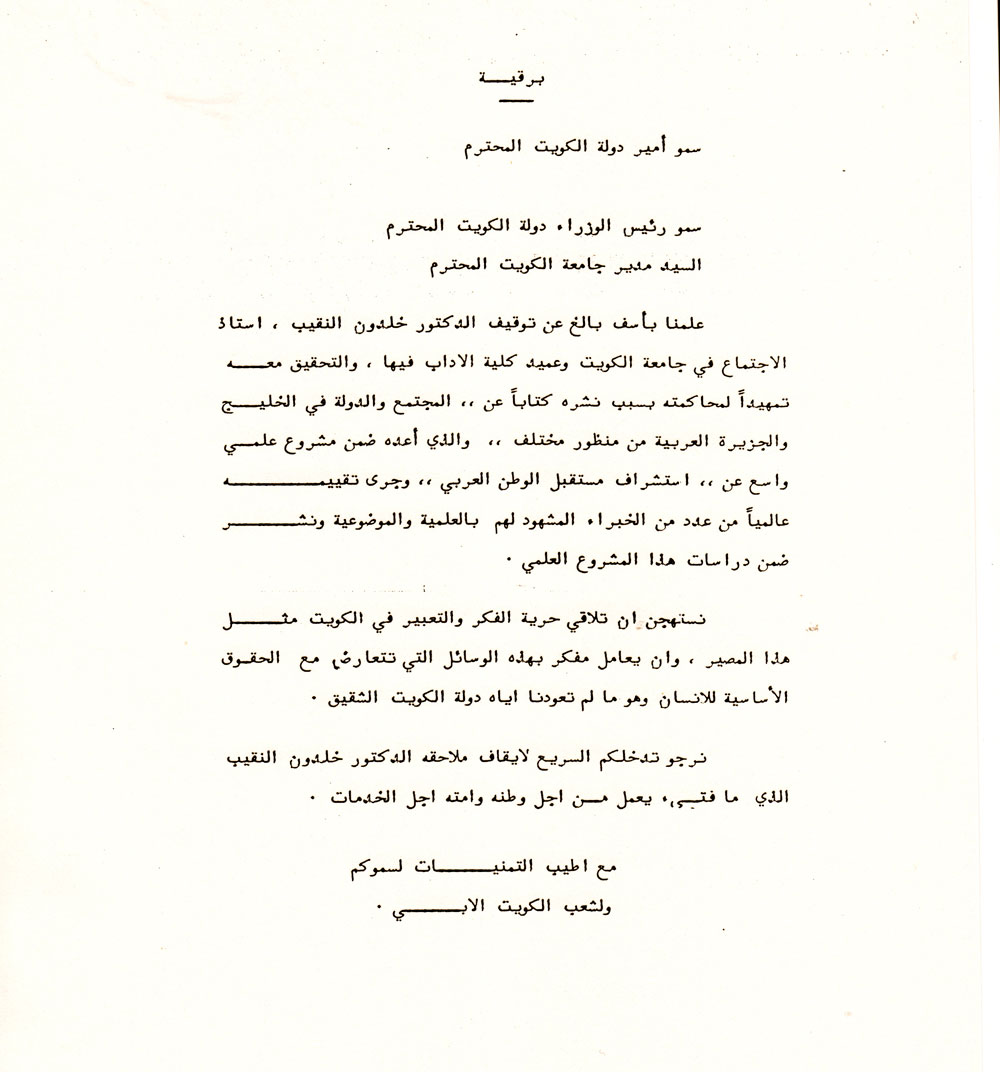 برقيـــة
سمو أمير دولة الكويت المحترم
سمو رئيس الوزراء دولة الكويت المحترم
السيد مدير جامعة الكويت المحترم
علمنا بأسف بالغ عن توقيف الدكتور خلدون النقيب ، استاذ
الاجتماع في جامعة الكويت وعميد كلية الاداب فيها ، والتحقيق معـــه
تمهيداً لمحاكمته بسبب نشره كتاباً عن ،، المجتمع والدولة في الخليـــج
والجزيرة العربية من منظور مختلف ،، والذي أعده ضمن مشروع علمــي
واسع عن ،، استشراف مستقبل الوطن العربي ،، وجرى تقييمـــــــــه
عالمياً من عدد من الخبراء المشهود لهم بالعلمية والموضوعية ونشـــــــر
ضمن دراسات هذا المشروع العلمي ·
نستهجن ان تلاقي حرية الفكر والتعبير في الكويت مثـــــل
هذا المصير ، وان يعامل مفكر بهذه الوسائل التي تتعارض مع الحقـوق
الأساسية للانسان وهو ما لم تعودنا اياه دولة الكويت الشقيق ·
نرجو تدخلكم السريع لايقاف ملاحقه الدكتور خلدون النقيب
الذي ما فتــيء يعمل مــن اجل وطنه وامته اجل الخدمات ·
مع اطيب التمنيـــــــات لسموكم
ولشعب الكويت الابـــــــي ·